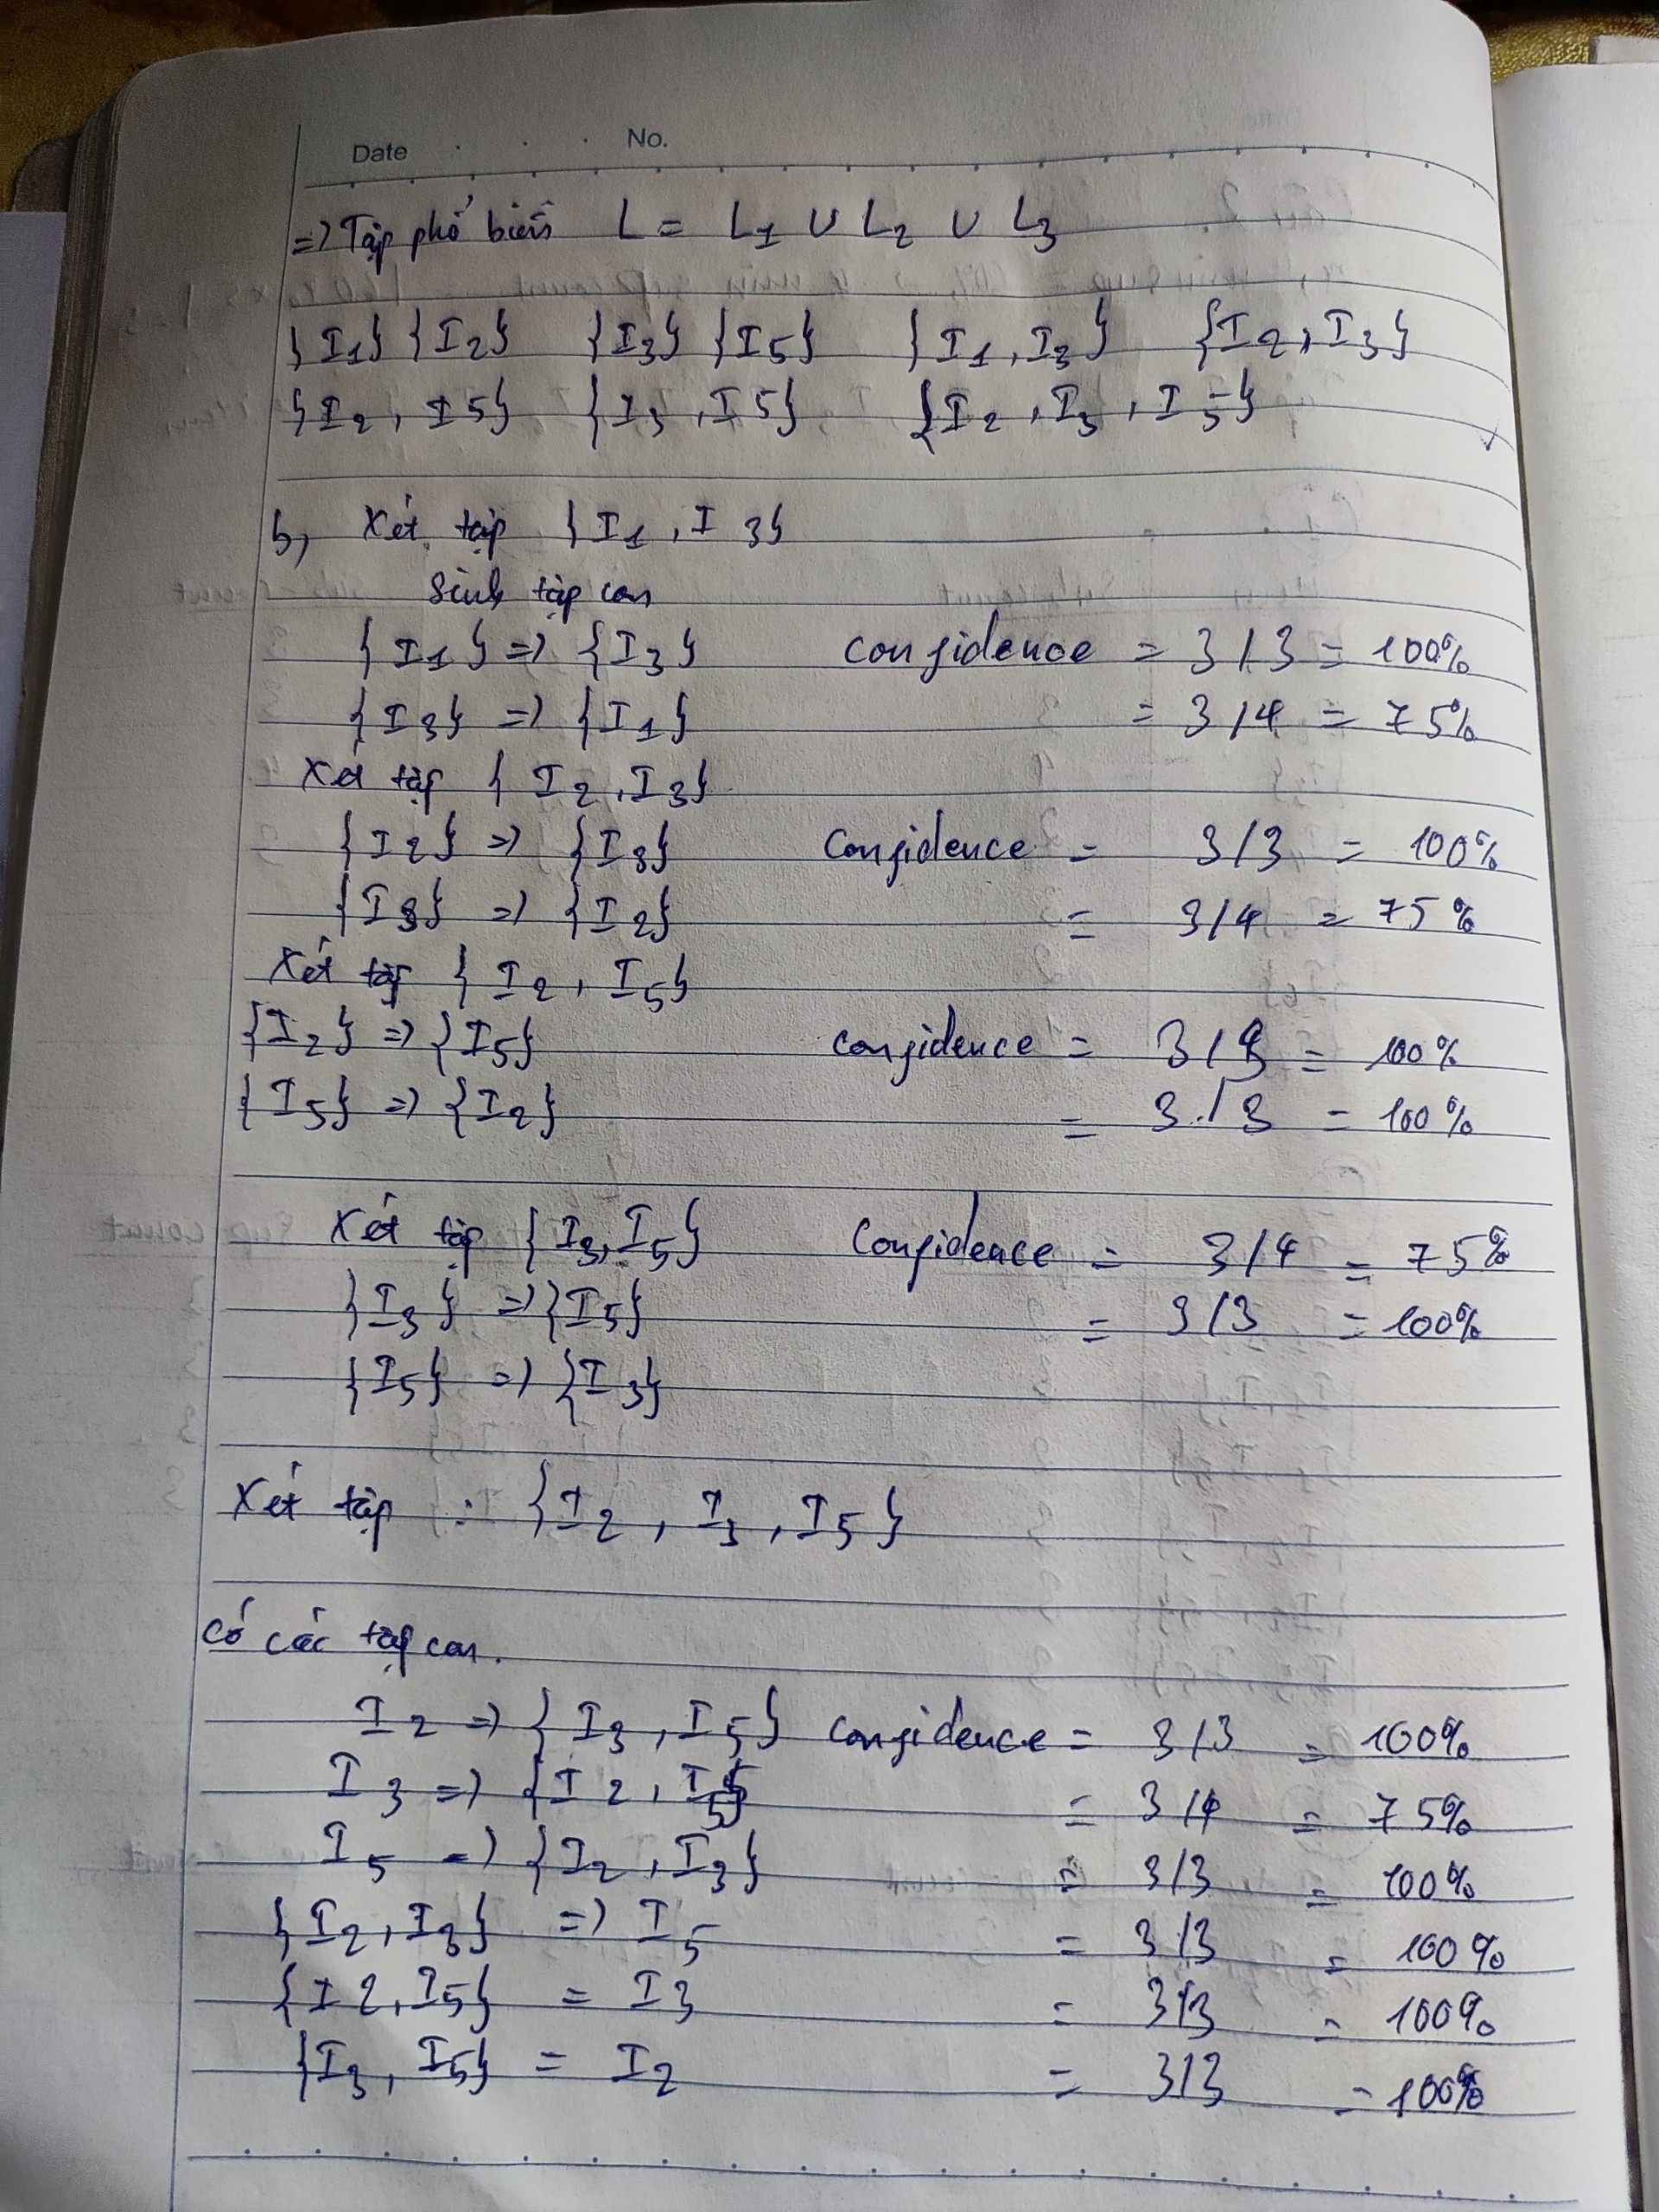 Date No.
=> Tập phổ biến L = L1 ∪ L2 ∪ L3
{I1} {I2} {I3} {I5} {I1, I3} {I2, I3}
{I2, I5} {I3, I5} {I2, I3, I5}
b, Xét tập {I1, I3}
Sinh tập con
{I1} => {I3} confidence = 3/3 = 100%
{I3} => {I1} = 3/4 = 75%
Xét tập {I2, I3}
{I2} => {I3} Confidence = 3/3 = 100%
{I3} => {I2} = 3/4 = 75%
Xét tập {I2, I5}
{I2} => {I5} confidence = 3/3 = 100%
{I5} => {I2} = 3/3 = 100%
Xét tập {I3, I5} Confidence = 3/4 = 75%
{I3} => {I5} = 3/3 = 100%
{I5} => {I3}
Xét tập : {I2, I3, I5}
có các tập con.
I2 => {I3, I5} confidence = 3/3 = 100%
I3 => {I2, I5} = 3/4 = 75%
I5 => {I2, I3} = 3/3 = 100%
{I2, I3} => I5 = 3/3 = 100%
{I2, I5} = I3 = 3/3 = 100%
{I3, I5} = I2 = 3/3 = 100%